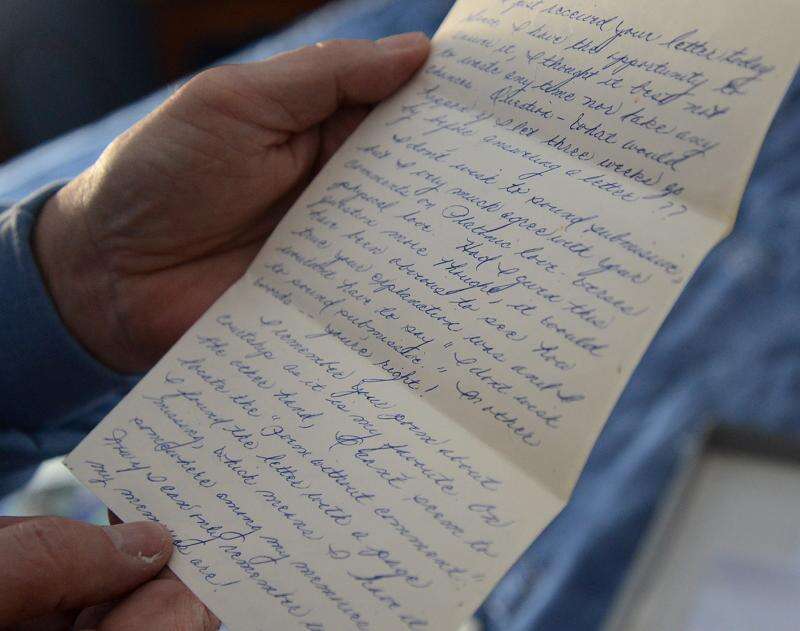 just received your letter today
Since I have the opportunity to
answer it, I thought it best not
to waste any time nor take any
chances. Question - What would
happen if I let three weeks go
by before answering a letter??
I don't wish to sound submissive,
but I very much agree with your
comments on Platonic love versus
physical love. Had I given this
question more thought, it would
have been obvious to see how
true your explanation was and I
wouldn't have to say "I don't wish
to sound submissive". In other
words you're right!
I remember your poem about
courtship as it is my favorite. On
the other hand, I can't seem to
locate the "poem without comment".
I found the letter with a page
missing, which means I have it
somewhere among my memories
Now if I can only remember where
my memories are!